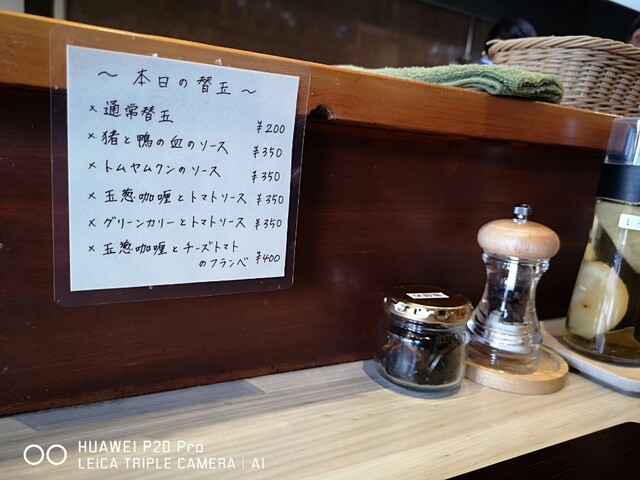 ～ 本日の替玉 ～
× 通常替玉 ¥200
× 猪と鴨の血のソース ¥350
× トムヤムクンのソース ¥350
× 玉葱咖喱とトマトソース ¥350
× グリーンカリーとトマトソース ¥350
× 玉葱咖喱とチーズトマト
のフランベ ¥400
HUAWEI P20 Pro
LEICA TRIPLE CAMERA | AI